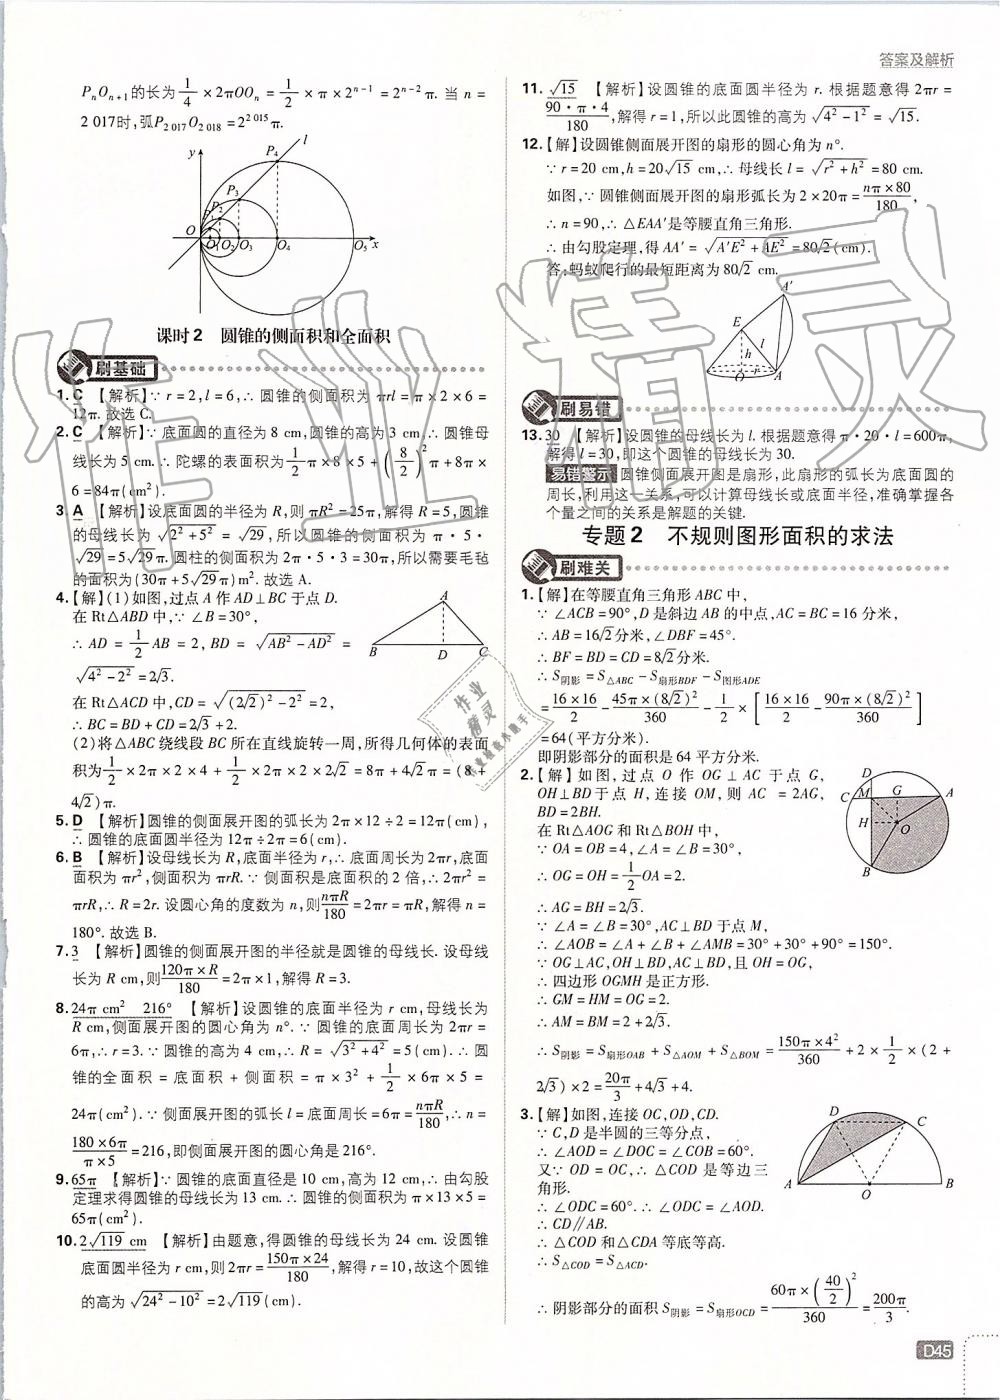 答案及解析
PₙOₙ₊₁的长为1/4×2πOOₙ=1/2×π×2ⁿ⁻¹=2ⁿ⁻²π. 当 n=
2 017时,弧P₂₀₁₇O₂₀₁₈=2²⁰¹⁵π.
y P₄ l
P₃
P₂
O O₁ O₂ O₃ O₄ O₅ x
课时2 圆锥的侧面积和全面积
刷基础
1. C 【解析】∵ r=2,l=6,∴ 圆锥的侧面积为 πrl=π×2×6=
12π. 故选 C.
2. C 【解析】∵ 底面圆的直径为 8 cm,圆锥的高为 3 cm,∴ 圆锥母
线长为 5 cm. ∴ 陀螺的表面积为1/2π×8×5+(8/2)²π+8π×
6=84π(cm²).
3. A 【解析】设底面圆的半径为 R,则 πR²=25π,解得 R=5,圆锥
的母线长为 √(2²+5²) = √29,所以圆锥的侧面积为 π·5·
√29=5√29π;圆柱的侧面积为 2π·5·3=30π,所以需要毛毡
的面积为(30π+5√29π)m². 故选 A.
4.【解】(1)如图,过点 A 作 AD⊥BC 于点 D.
在 Rt△ABD 中,∵ ∠B=30°,
∴ AD = 1/2 AB = 2, BD = √(AB²-AD²) =
√(4²-2²)=2√3.
在 Rt△ACD 中,CD=√((2√2)²-2²)=2,
∴ BC=BD+CD=2√3+2.
A
B D C
(2)将△ABC 绕线段 BC 所在直线旋转一周,所得几何体的表面
积为1/2×2π×2×4+1/2×2π×2×2√2=8π+4√2π=(8+
4√2)π.
5. D 【解析】圆锥的侧面展开图的弧长为 2π×12÷2=12π(cm),
∴ 圆锥的底面圆半径为 12π÷2π=6(cm).
6. B 【解析】设母线长为 R,底面半径为 r,∴ 底面周长为 2πr,底面
面积为 πr²,侧面积为 πrR. ∵ 侧面积是底面积的 2 倍,∴ 2πr²=
πrR,∴ R=2r. 设圆心角的度数为 n,则nπR/180=2πr=πR,解得 n=
180°. 故选 B.
7. 3 【解析】圆锥的侧面展开图的半径就是圆锥的母线长. 设母线
长为 R cm,则120π×R/180=2π×1,解得 R=3.
8. 24π cm² 216° 【解析】设圆锥的底面半径为 r cm,母线长为
R cm,侧面展开图的圆心角为 n°. ∵ 圆锥的底面周长为 2πr=
6π,∴ r=3. ∵ 圆锥的高为 4 cm,∴ R=√(3²+4²)=5(cm). ∴ 圆
锥的全面积 = 底面积 + 侧面积 = π×3²+1/2×6π×5=
24π(cm²). ∵ 侧面展开图的弧长 l=底面周长=6π=nπR/180,∴ n=
180×6π/π×5=216,即侧面展开图的圆心角是 216°.
9. 65π 【解析】∵ 圆锥的底面直径是 10 cm,高为 12 cm,∴ 由勾股
定理求得圆锥的母线长为 13 cm. ∴ 圆锥的侧面积为 π×13×5=
65π(cm²).
10. 2√119 cm 【解析】由题意,得圆锥的母线长为 24 cm. 设圆锥
底面圆半径为 r cm,则 2πr=150π×24/180,解得 r=10,故这个圆锥
的高为√(24²-10²)=2√119(cm).
11. √15 【解析】设圆锥的底面圆半径为 r. 根据题意得 2πr=
90·π·4/180,解得 r=1,所以此圆锥的高为 √(4²-1²)=√15.
12.【解】设圆锥侧面展开图的扇形的圆心角为 n°.
∵ r=20 cm,h=20√15 cm,∴ 母线长 l=√(r²+h²)=80 cm.
如图,∵ 圆锥侧面展开图的扇形弧长为 2×20π=nπ×80/180,
∴ n=90,∴ △EAA′是等腰直角三角形.
∴ 由勾股定理,得 AA′=√(A′E²+AE²)=80√2(cm).
答:蚂蚁爬行的最短距离为 80√2 cm.
A′
E
l
h
O A
刷易错
13. 30 【解析】设圆锥的母线长为 l. 根据题意得 π·20·l=600π,
解得 l=30,即这个圆锥的母线长为 30.
易错警示 圆锥侧面展开图是扇形,此扇形的弧长为底面圆的
周长,利用这一关系,可以计算母线长或底面半径,准确掌握各
个量之间的关系是解题的关键.
专题2 不规则图形面积的求法
刷难关
1.【解】在等腰直角三角形 ABC 中,
∵ ∠ACB=90°,D 是斜边 AB 的中点,AC=BC=16 分米,
∴ AB=16√2分米,∠DBF=45°.
∴ BF=BD=CD=8√2分米.
∴ S阴影=S△ABC-S扇形BDF-S图形ADE
=16×16/2-45π×(8√2)²/360-1/2×[16×16/2-90π×(8√2)²/360]
=64(平方分米).
即阴影部分的面积是 64 平方分米.
2.【解】如图,过点 O 作 OG⊥AC 于点 G,
OH⊥BD 于点 H,连接 OM,则 AC=2AG,
BD=2BH.
在 Rt△AOG 和 Rt△BOH 中,
∵ OA=OB=4,∠A=∠B=30°,
∴ OG=OH=1/2OA=2.
∴ AG=BH=2√3.
∵ ∠A=∠B=30°,AC⊥BD 于点 M,
∴ ∠AOB=∠A+∠B+∠AMB=30°+30°+90°=150°.
∵ OG⊥AC,OH⊥BD,AC⊥BD,且 OG=OH,
∴ 四边形 OGMH 是正方形.
∴ GM=HM=OG=2.
∴ AM=BM=2+2√3.
∴ S阴影=S扇形OAB+S△AOM+S△BOM=150π×4²/360+2×1/2×(2+
2√3)×2=20π/3+4√3+4.
D
C M G A
H O
B
3.【解】如图,连接 OC,OD,CD.
∵ C,D 是半圆的三等分点,
∴ ∠AOD=∠DOC=∠COB=60°.
又∵ OD=OC,∴ △COD 是等边三
角形.
∴ ∠ODC=60°. ∴ ∠ODC=∠AOD.
∴ CD∥AB.
∴ △COD 和△CDA 等底等高.
∴ S△COD=S△ACD.
∴ 阴影部分的面积 S阴影=S扇形OCD=60π×(40/2)²/360=200π/3.
D C
A O B
D45
作业精灵
作业精灵